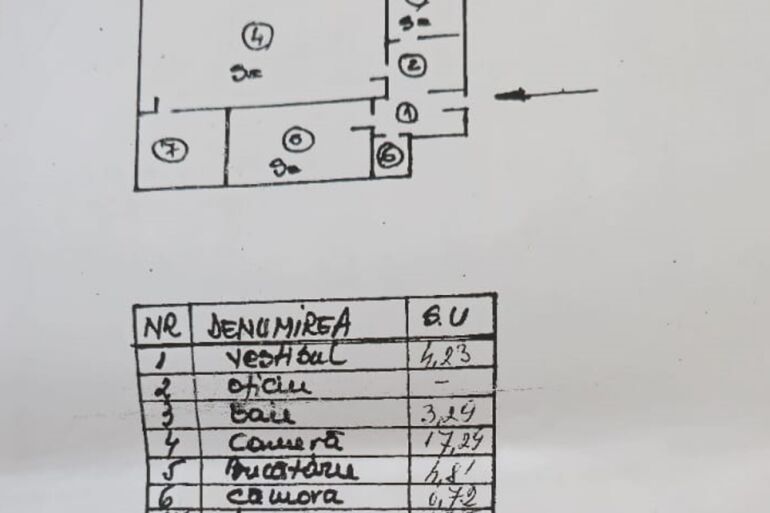 4
2
1
7
6
NR DENUMIREA S.U
1 vestibul 4,23
2 oficiu -
3 baie 3,24
4 cameră 17,24
5 Bucătărie 4,81
6 cămara 0,72